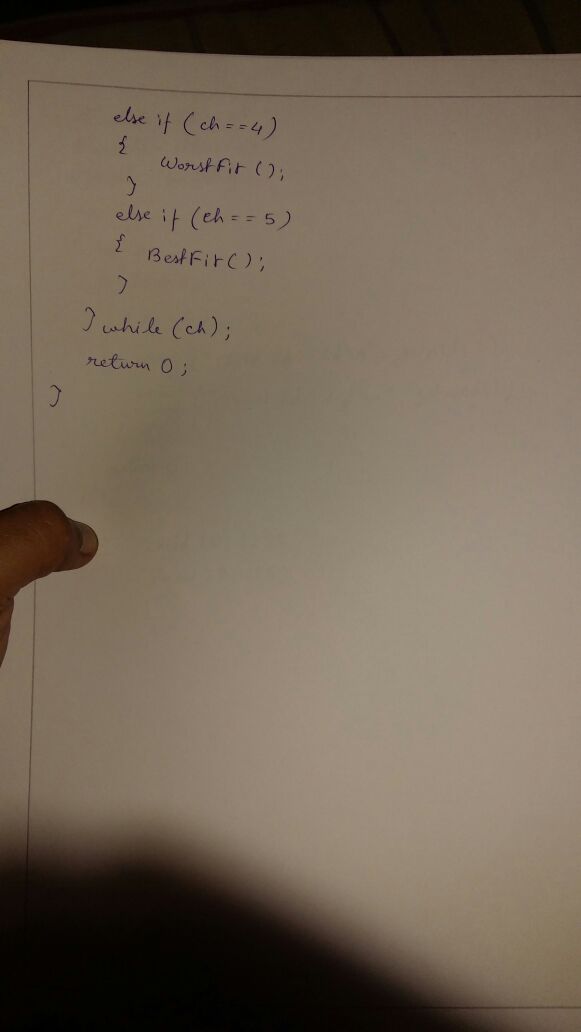 else if (ch==4)
{ WorstFit ();
}
else if (ch == 5)
{ BestFit();
}
} while (ch);
return 0;
}